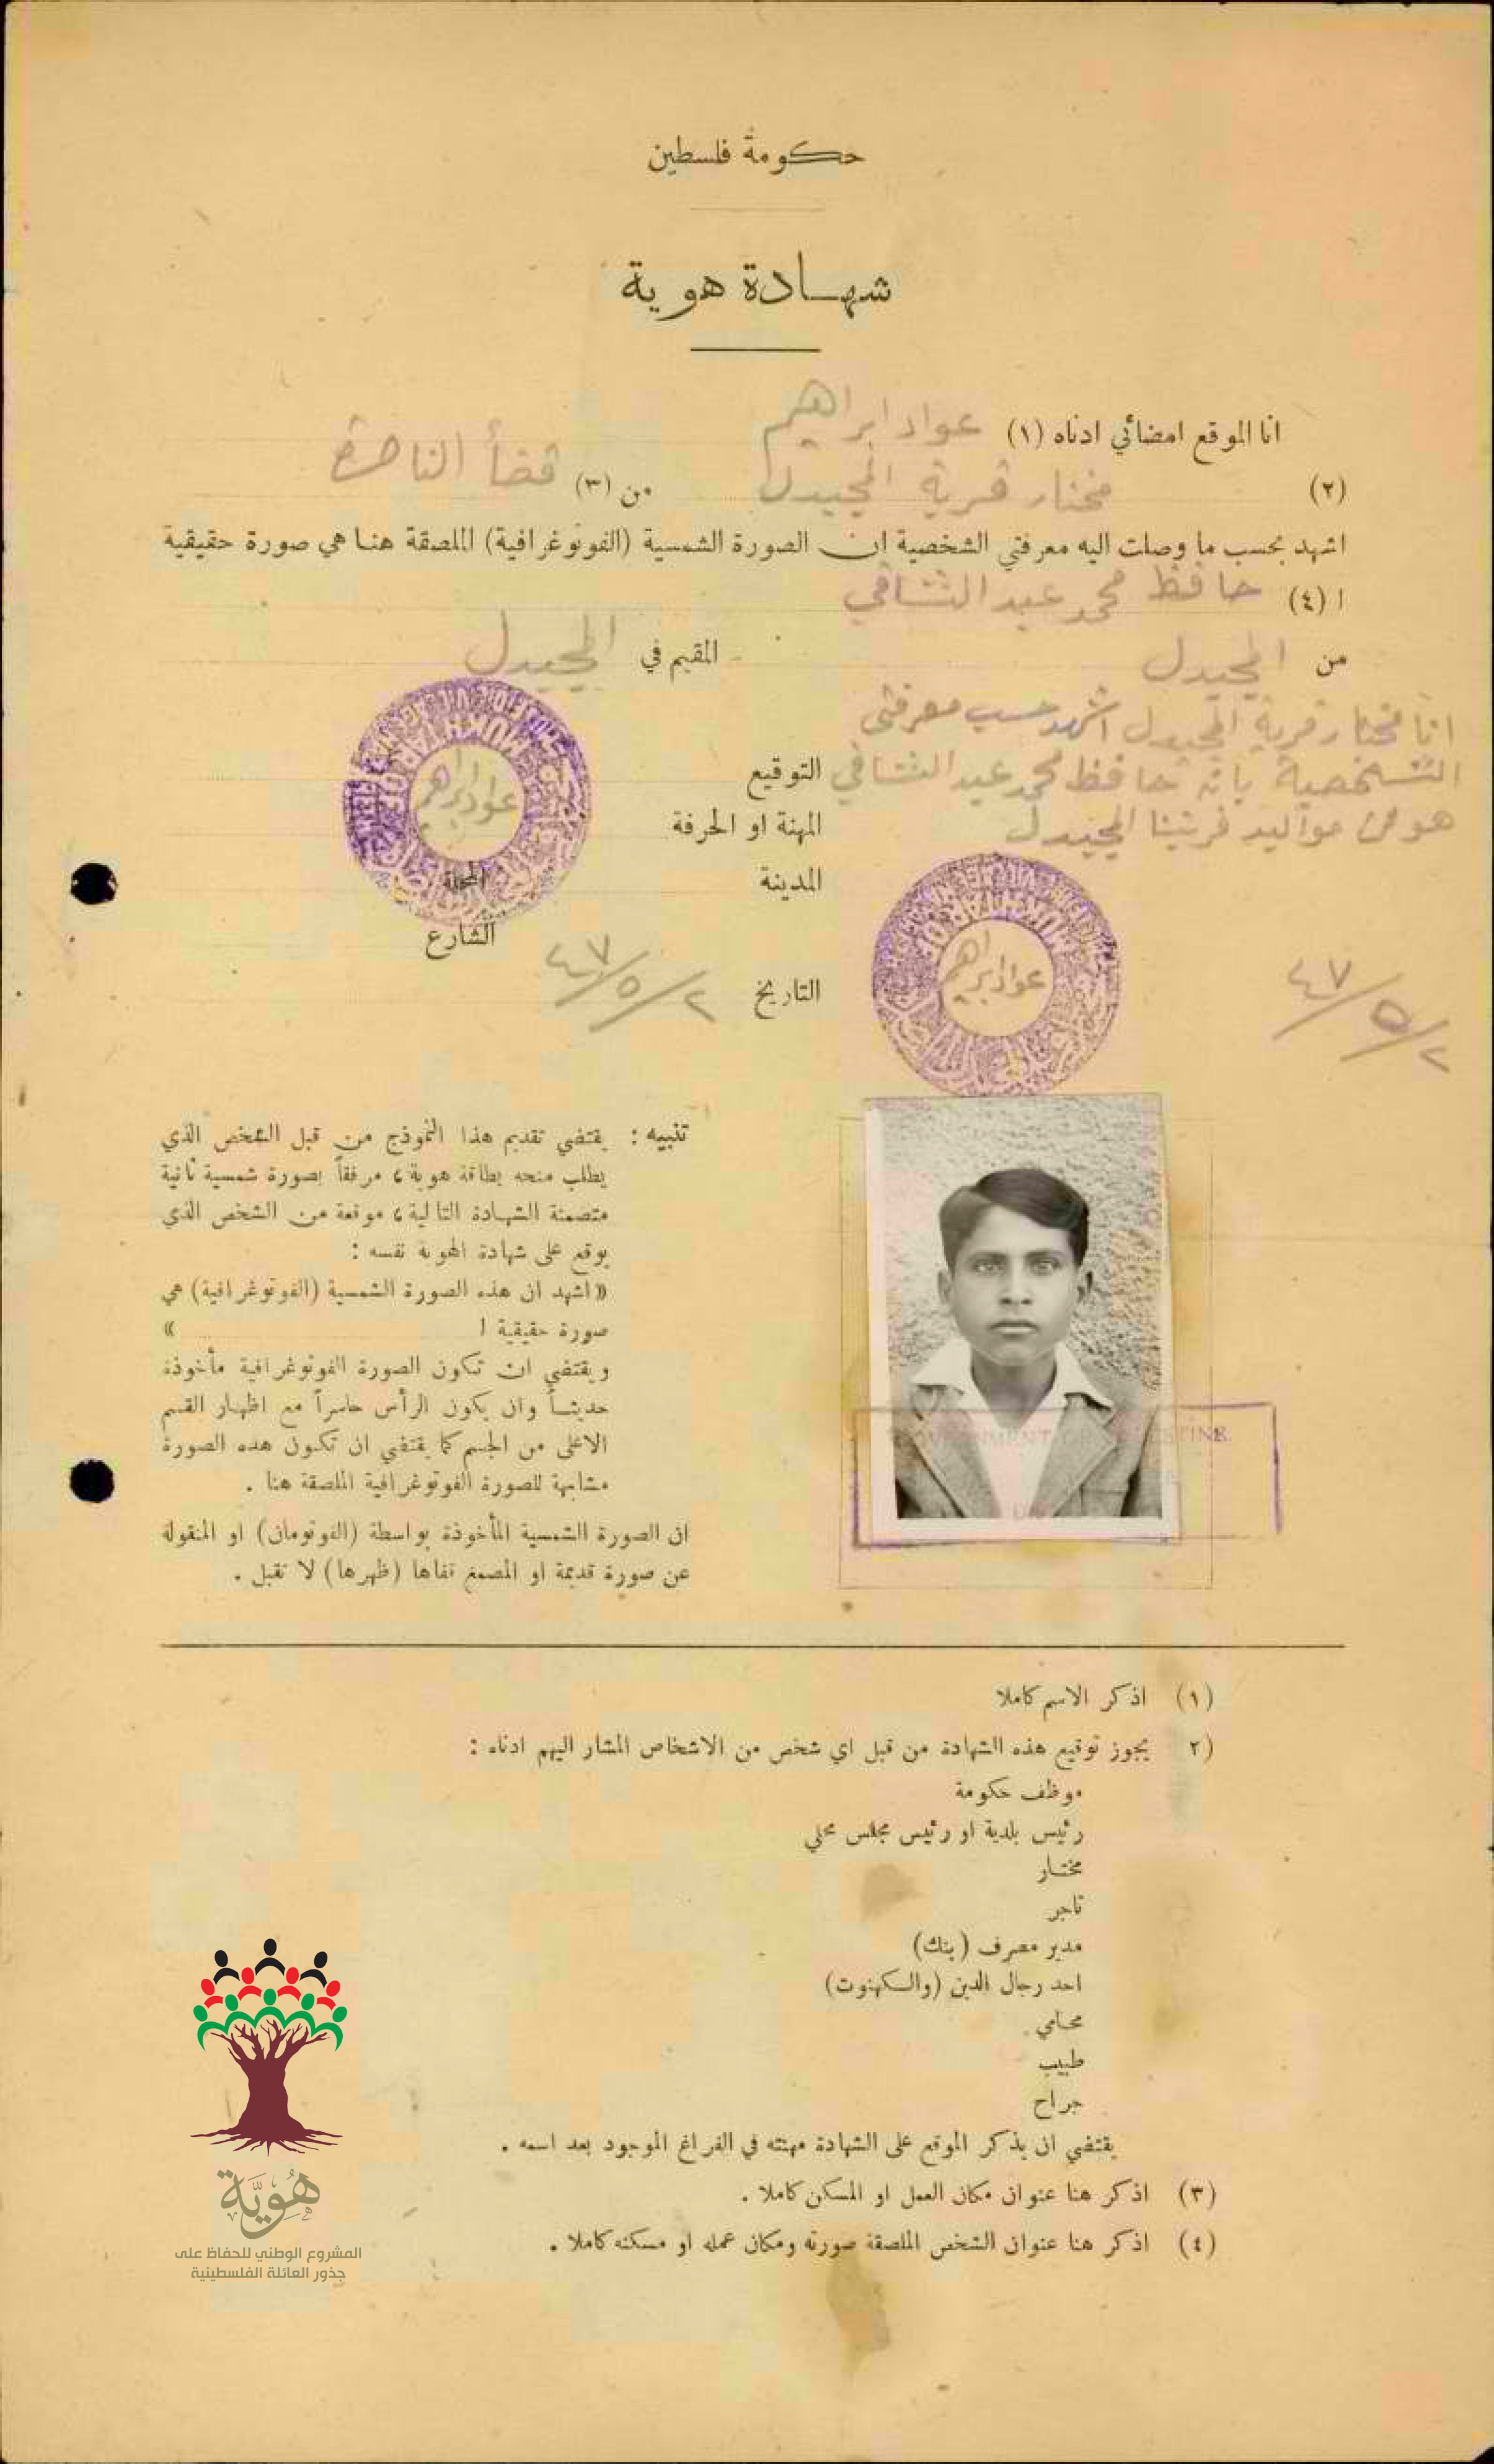 حكومة فلسطين
شهادة هوية
انا الموقع امضائي ادناه (١) عواد ابراهيم
(٢) مختار قرية المجيدل من (٣) قضأ الناصرة
اشهد بحسب ما وصلت اليه معرفتي الشخصية ان الصورة الشمسية (الفوتوغرافية) الملصقة هنا هي صورة حقيقية
ا (٤) حافظ محمد عبد الشافي
من المجيدل المقيم في المجيدل
انا مختار قرية المجيدل اشهد حسب معرفتي
الشخصية بانه حافظ محمد عبد الشافي
هو من مواليد قريتنا المجيدل
التوقيع
عواد ابراهيم
المهنة او الحرفة
المدينة
المحلة
الشارع
التاريخ ٤٧/٥/٢
MUKHTAR OF
عواد ابراهيم
MUKHTAR OF
٤٧/٥/٢
تنبيه : يقتضي تقديم هذا النموذج من قبل الشخص الذي
يطلب منحه بطاقة هوية، مرفقاً بصورة شمسية ثانية
متضمنة الشهادة التالية، موقعة من الشخص الذي
يوقع على شهادة الهوية نفسه :
« اشهد ان هذه الصورة الشمسية (الفوتوغرافية) هي
صورة حقيقية ا »
ويقتضي ان تكون الصورة الفوتوغرافية مأخوذة
حديثاً وان يكون الرأس حاسراً مع اظهار القسم
الاعلى من الجسم كما يقتضي ان تكون هذه الصورة
مشابهة للصورة الفوتوغرافية الملصقة هنا .
ان الصورة الشمسية المأخوذة بواسطة (الفوتومان) او المنقولة
عن صورة قديمة او المصمغ قفاها (ظهرها) لا تقبل .
GOVERNMENT OF PALESTINE
(١) اذكر الاسم كاملا
(٢ يجوز توقيع هذه الشهادة من قبل اي شخص من الاشخاص المشار اليهم ادناه :
موظف حكومة
رئيس بلدية او رئيس مجلس محلي
مختار
تاجر
مدير مصرف (بنك)
احد رجال الدين (والكهنوت)
محامي
طبيب
جراح
يقتضي ان يذكر الموقع على الشهادة مهنته في الفراغ الموجود بعد اسمه .
(٣) اذكر هنا عنوان مكان العمل او المسكن كاملا .
(٤) اذكر هنا عنوان الشخص الملصقة صورته ومكان عمله او مسكنه كاملا .
هُوِيَّة
المشروع الوطني للحفاظ على
جذور العائلة الفلسطينية